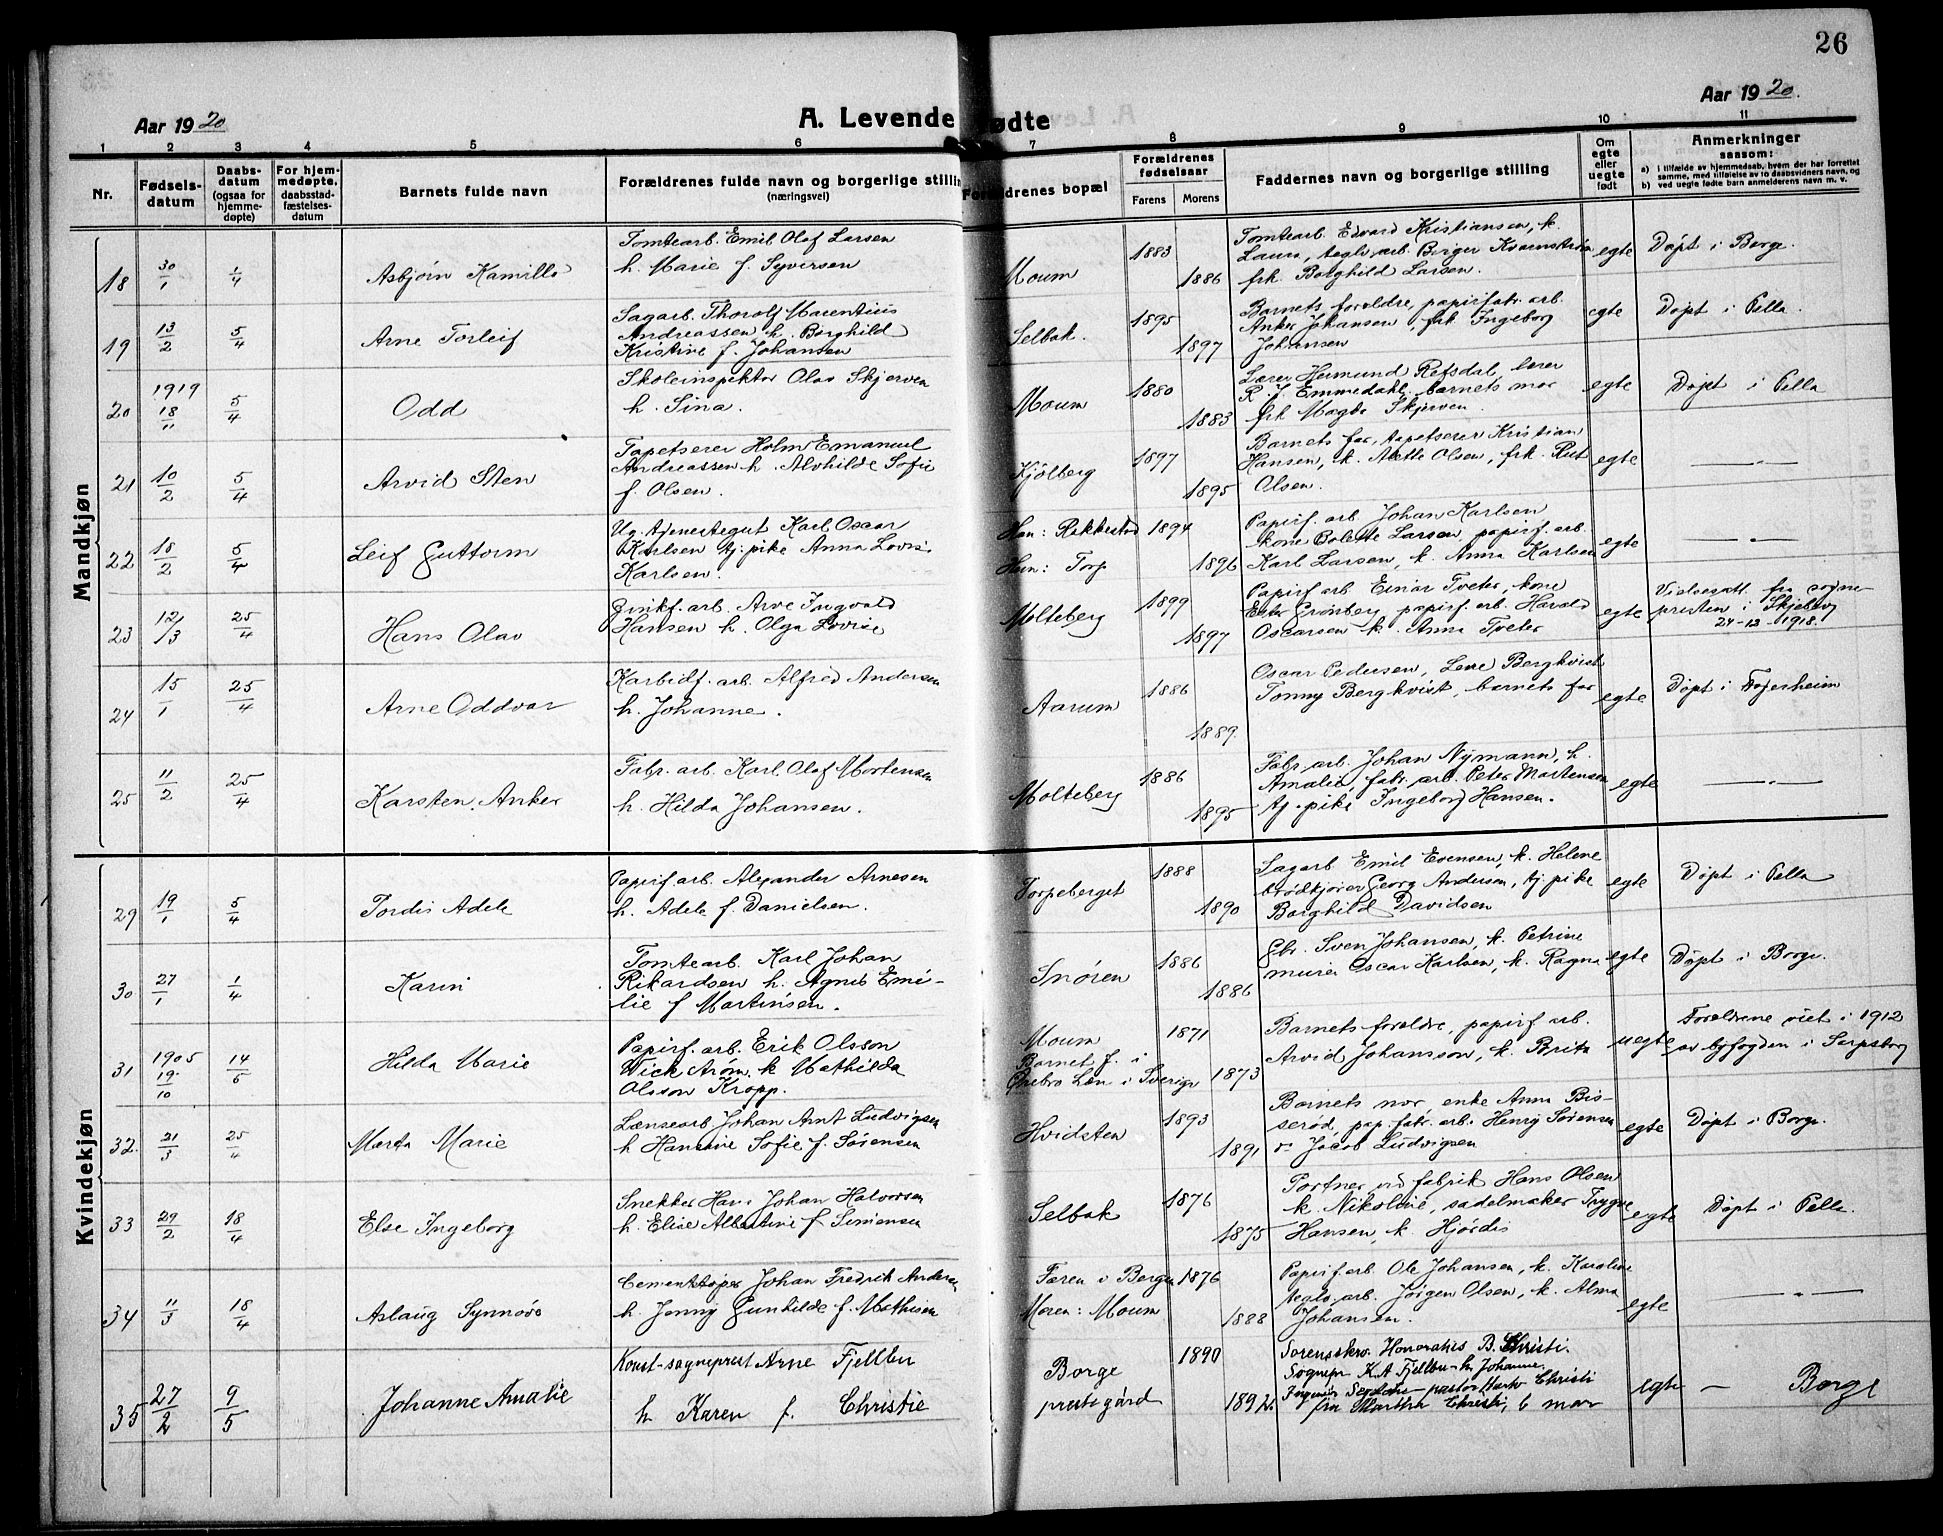 26
Aar 1920
A. Levende fødte
Aar 1920.
1 2 3 4 5 6 7 8 9 10 11
Nr. Fødselsdatum Daabsdatum (ogsaa for hjemmedøpte) For hjemmedøpte, daabsstadfæstelsesdatum Barnets fulde navn Forældrenes fulde navn og borgerlige stilling (næringsvei) Forældrenes bopæl Forældrenes fødselsaar Farens Morens Faddernes navn og borgerlige stilling Om egte eller uegte født Anmerkninger saasom:
a) i tilfælde av hjemmedaab, hvem der har forrettet samme, med tilføielse av to daabsvidners navn, og
b) ved uegte fødte barn anmelderens navn m. v.
Mandkjøn
18 30/1 1/4 Asbjørn Kamillo
Tomtearb. Emil Olaf Larsen
h. Marie f. Syversen
Moum 1883 1886
Tomtearb. Edvard Kristiansen, k.
Laura, teglv. arb. Birger Kvarnstrøm
frk. Borghild Larsen.
egte Døpt i Borge.
19 13/2 5/4 Arne Torleif
Sagarb. Thorolf Marentius
Andreassen h. Borghild
Kristine f. Johansen
Selbak. 1895 1897
Barnets foreldre, papirfabr. arb.
Anker Johansen, frk Ingeborg
Johansen
egte Døpt i Pella.
20 1919 18/11 5/4 Odd
Skoleinspektør Olav Skjerven
h. Sina.
Moum 1880 1883
Lærer Hermund Refsdal, lærer
R. J. Emmedahl, barnets mor
frk Magda Skjerven.
egte Døpt i Pella
21 10/2 5/4 Arvid Sten
Tapetserer Holm Emanuel
Andreassen h. Alvhilde Sofie
f. Olsen.
Kjølberg 1897 1895
Barnets far, tapetserer Kristian
Hansen, k. Mette Olsen, frk. Rut
Olsen.
egte — " —
22 18/2 5/4 Leif Guttorm
Ug. tjenestegut Karl Oscar
Karlsen tj. pike Anna Lovise
Karlsen.
Han: Rakkestad Hun: Torp 1894 1896
Papirf. arb Johan Karlsen
kone Bolette Larsen, papirf. arb.
Karl Larsen, k. Anna Karlsen
egte — " —
23 12/3 25/4 Hans Olav
Zinkf. arb. Arve Ingvald
Hansen h. Olga Lovise
Molteberg 1899 1897
Papirf arb Einar Tveter, kone
Ester Grønberg, papirf. arb. Harald
Oscarsen k. Anna Tveter
egte Vielsesatt. fra sogne-
presten i Skjeberg
24-12-1918.
24 15/1 25/4 Arne Oddvar
Karbidf. arb. Alfred Andersen
h. Johanne.
Aarum 1886 1889.
Oscar Pedersen, Lene Bergkvist
Tonny Bergkvist, barnets far
egte Døpt i
25 11/2 25/4 Karsten Anker
Fabr. arb. Karl Olaf Mortensen
h. Hilda Johansen.
Molteberg 1886 1895
Fabr. arb. Johan Nymann, h.
Amalie, fabr. arb. Peter Martensen
tj. pike Ingeborg Hansen.
egte — " —
Kvindekjøn
29 19/1 5/4 Tordis Adele
Papirf arb. Alexander Arnesen
h. Adele f. Danielsen.
Torpeberget 1888 1890
Sagarb Emil Evensen, k. Helene
brødkjører Georg Andersen, tj. pike
Borghild Davidsen
egte Døpt i Pella
30 27/1 1/4 Karin
Tomtearb. Karl Johan
Rikardsen h. Agnes Emi-
lie f Martinsen.
Snøren 1886 1886
Gbr. Sven Johansen, k. Petrine
murer Oscar Karlsen, k. Ragna
egte Døpt i Borge.
31 1905 19/10 14/5 Hilda Marie
Papirf. arb. Erik Olsson
Wick Arom. k Mathilda
Olsson Kropp.
Moum
Barnet f. i
Örebro Len i Sverige 1871 1873
Barnets foreldre, papirf arb.
Arvid Johansson, k. Brita
uegte Foreldrene viet i 1912
av byfogden i Sarpsborg
32. 21/3 25/4 Marta Marie
Lænsearb Johan Arnt Ludvigsen
h Hansine Sofie f. Sørensen
Hvidsten 1893 1891
Barnets mor, enke Anna Bis-
serød, pap. fabr. arb. Henry Sørensen
o. Jacob Ludvigsen
egte Døpt i Borge.
33 29/2 18/4 Else Ingeborg
Snekker Hans Johan Halvorsen
h. Elise Albertine f Simensen
Selbak 1876 1875
Portner ved fabrik Hans Olsen
k. Nikoline, sadelmaker Trygve
Hansen, k. Hjørdis
egte Døpt i Pella.
34 11/3 18/4 Aslaug Synnøve
Cementstøper Johan Fredrik Andersen
h. Jenny Gunhilde f. Mathisen
Faren i Bergen
Moren: Moum 1876 1888
Papirf. arb. Ole Johansen, k. Karoline
teglv. arb. Jørgen Olsen, k. Alma
Johansen.
egte — " —
35 27/2 9/5 Johanne Amalie
Konst. sogneprest Arne Fjellbu
h. Karen f. Christie
Borge
prestegård 1890 1892
Sorenskr. Honoratus B. Christi.
Sognepr. K. A Fjellbu - h. Johanne.
Ingeniør pastor Christi
fru Martha Christi, b mor
egte — Borge